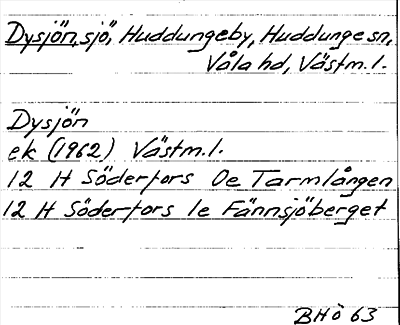 Dysjön, sjö, Huddungeby, Huddunge sn,
Våla hd, Västm. l.
Dysjön
ek (1962) Västm. l.
12 H Söderfors 0e Tarmlången
12 H Söderfors 1e Fännsjöberget
BHÖ 63